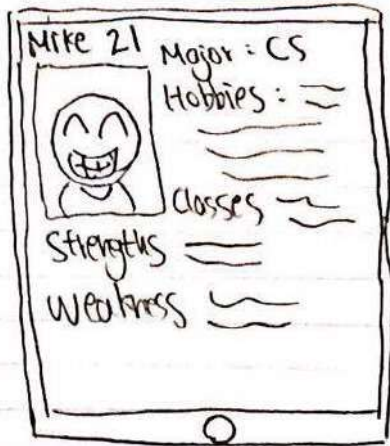 Mike 21
Major: CS
Hobbies:
Classes
Strengths
Weakness